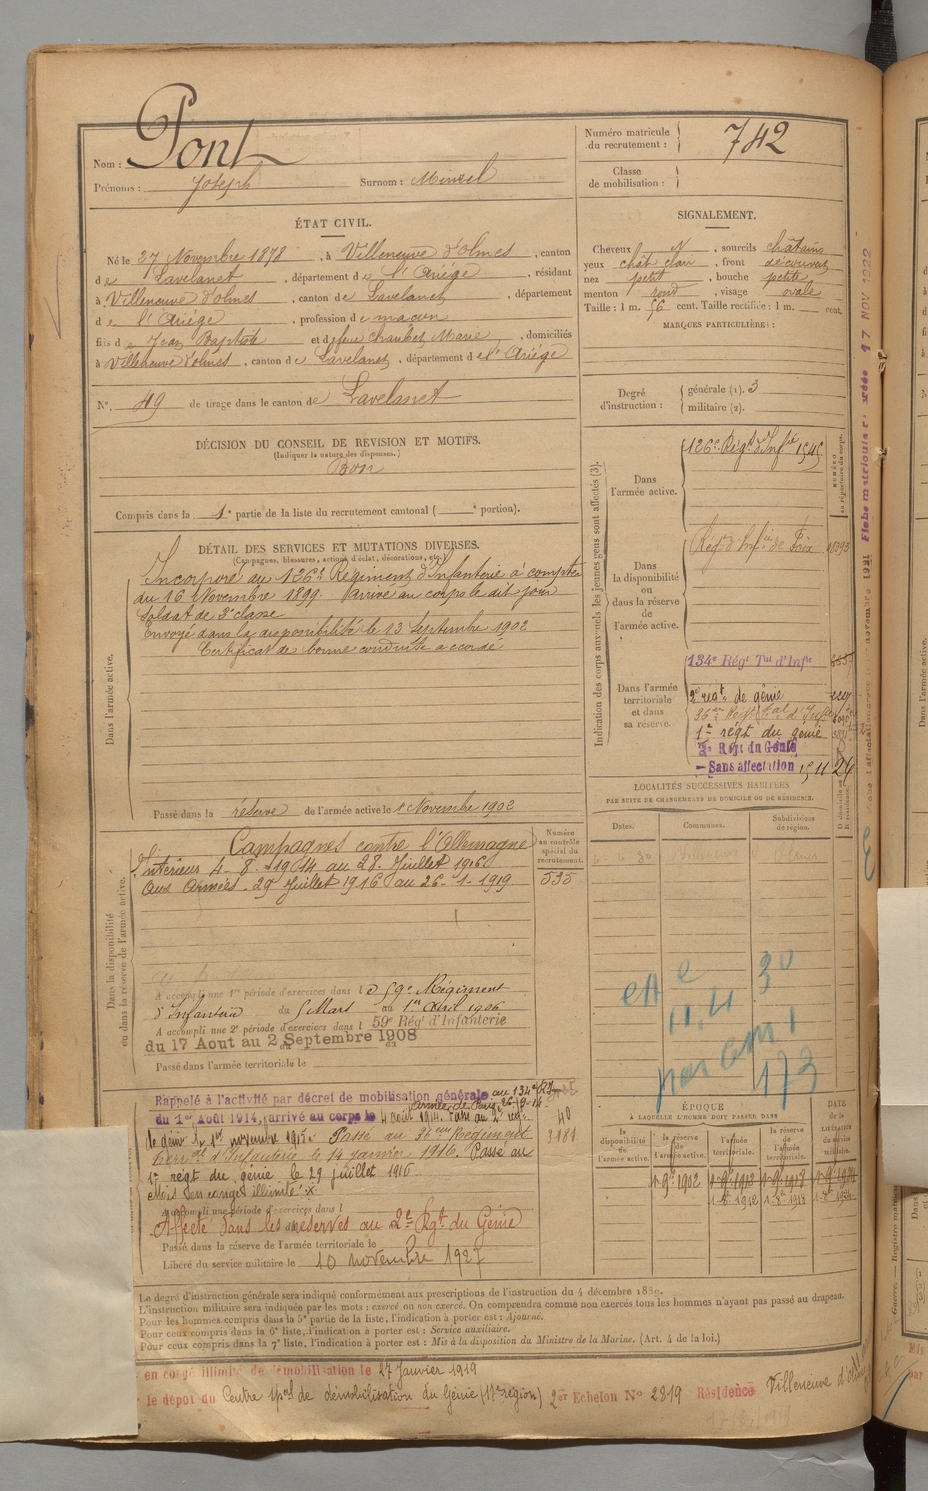 Nom : Pont
Prénoms : Joseph Surnom :
Numéro matricule du recrutement : 742
Classe de mobilisation :
ÉTAT CIVIL.
Né le 27 Novembre 1878, à Villeneuve d'Olmes, canton
de Lavelanet, département de l'Ariége, résidant
à Villeneuve d'olmes, canton de Lavelanet, département
de l'Ariége, profession de maçon
fils de Jean Baptiste et de feue Marie, domiciliés
à Villeneuve d'olmes, canton de Lavelanet, département de l'Ariége
N° 49 de tirage dans le canton de Lavelanet
SIGNALEMENT.
Cheveux N, sourcils châtains
yeux chât clair, front découvert
nez petit, bouche petite
menton rond, visage ovale
Taille : 1 m. 56 cent. Taille rectifiée : 1 m. cent.
MARQUES PARTICULIÈRES :
Degré d'instruction : générale (1). 3
militaire (2).
DÉCISION DU CONSEIL DE REVISION ET MOTIFS.
(Indiquer la nature des dispenses.)
Bon
Compris dans la 1e partie de la liste du recrutement cantonal ( e portion).
DÉTAIL DES SERVICES ET MUTATIONS DIVERSES.
(Campagnes, blessures, actions d'éclat, décorations, etc.)
Dans l'armée active.
Incorporé au 126e Régiment d'Infanterie à compter
du 16 Novembre 1899. Arrivé au corps le dit jour
Soldat de 2e classe
Envoyé dans la disponibilité le 13 Septembre 1902
Certificat de bonne conduite accordé
Passé dans la réserve de l'armée active le 1 Novembre 1902
Indication des corps auxquels les jeunes gens sont affectés (3).
Dans l'armée active.
126e Régt d'Infrie 1545
Dans la disponibilité ou dans la réserve de l'armée active.
Régt d'Infrie de Foix
Dans l'armée territoriale et dans sa réserve.
134e Régt Tal d'Infie
2e regt de génie
36e Régt tal d'Infie
1e régt du génie
2e Régt du Génie
Sans affectation
LOCALITÉS SUCCESSIVES HABITÉES
PAR SUITE DE CHANGEMENTS DE DOMICILE OU DE RÉSIDENCE.
Dates. Communes. Subdivisions de région.
Dans la disponibilité ou dans la réserve de l'armée active.
Campagnes contre l'Allemagne
Intérieur 4-8-1914 au 28 Juillet 1916
Aux Armées 29 Juillet 1916 au 26-1-1919
Numéro au contrôle spécial du recrutement.
535
A accompli une 1re période d'exercices dans le 59e Régiment
d'Infanterie du 5 Mars au 1er Avril 1906
A accompli une 2e période d'exercices dans le 59e Régt d'Infanterie
du 17 Aout au 2 Septembre 1908
Passé dans l'armée territoriale le
Rappelé à l'activité par décret de mobilisation générale au 134e
du 1er Août 1914, arrivé au corps le 4 août 1914. Passé au 2e régt
de génie le 1er novembre 1915. Passé au 36eme Régiment
d'Infanterie le 14 janvier 1916. Passé au
1er régt du génie le 29 juillet 1916
Mis en congé illimité
Affecté dans les réserves au 2e Rgt du Génie
Passé dans la réserve de l'armée territoriale le
Libéré du service militaire le 10 novembre 1927
3181
ÉPOQUE
À LAQUELLE L'HOMME DOIT PASSER DANS
la disponibilité de l'armée active.
la réserve de l'armée active.
l'armée territoriale.
la réserve de l'armée territoriale.
DATE de la LIBÉRATION du service militaire.
Le degré d'instruction générale sera indiqué conformément aux prescriptions de l'instruction du 4 décembre 1889.
L'instruction militaire sera indiquée par les mots : exercé ou non exercé. On comprendra comme non exercés tous les hommes n'ayant pas passé au drapeau.
Pour les hommes compris dans la 5e partie de la liste, l'indication à porter est : Ajourné.
Pour ceux compris dans la 6e liste, l'indication à porter est : Service auxiliaire.
Pour ceux compris dans la 7e liste, l'indication à porter est : Mis à la disposition du Ministre de la Marine. (Art. 4 de la loi.)
en congé illimité de démobilisation le 27 Janvier 1919
le dépôt du Centre de démobilisation du Génie (17e région) 2er Echelon N° 2819 Résidence Villeneuve d'olmes